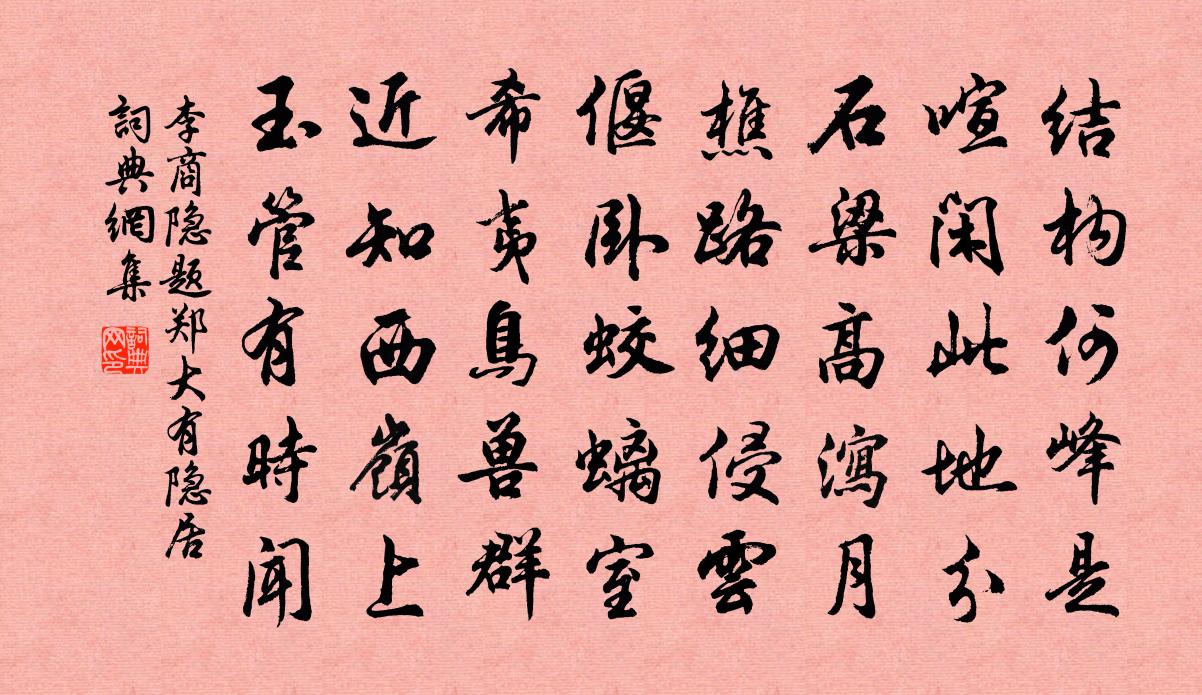 结构何峰是
喧闲此地分
石梁高瀉月
樵路细侵雲
偃卧蛟螭室
希夷鳥兽群
近知西嶺上
玉管有時闻
李商隐题郑大有隐居
詞典網集
詞典网印